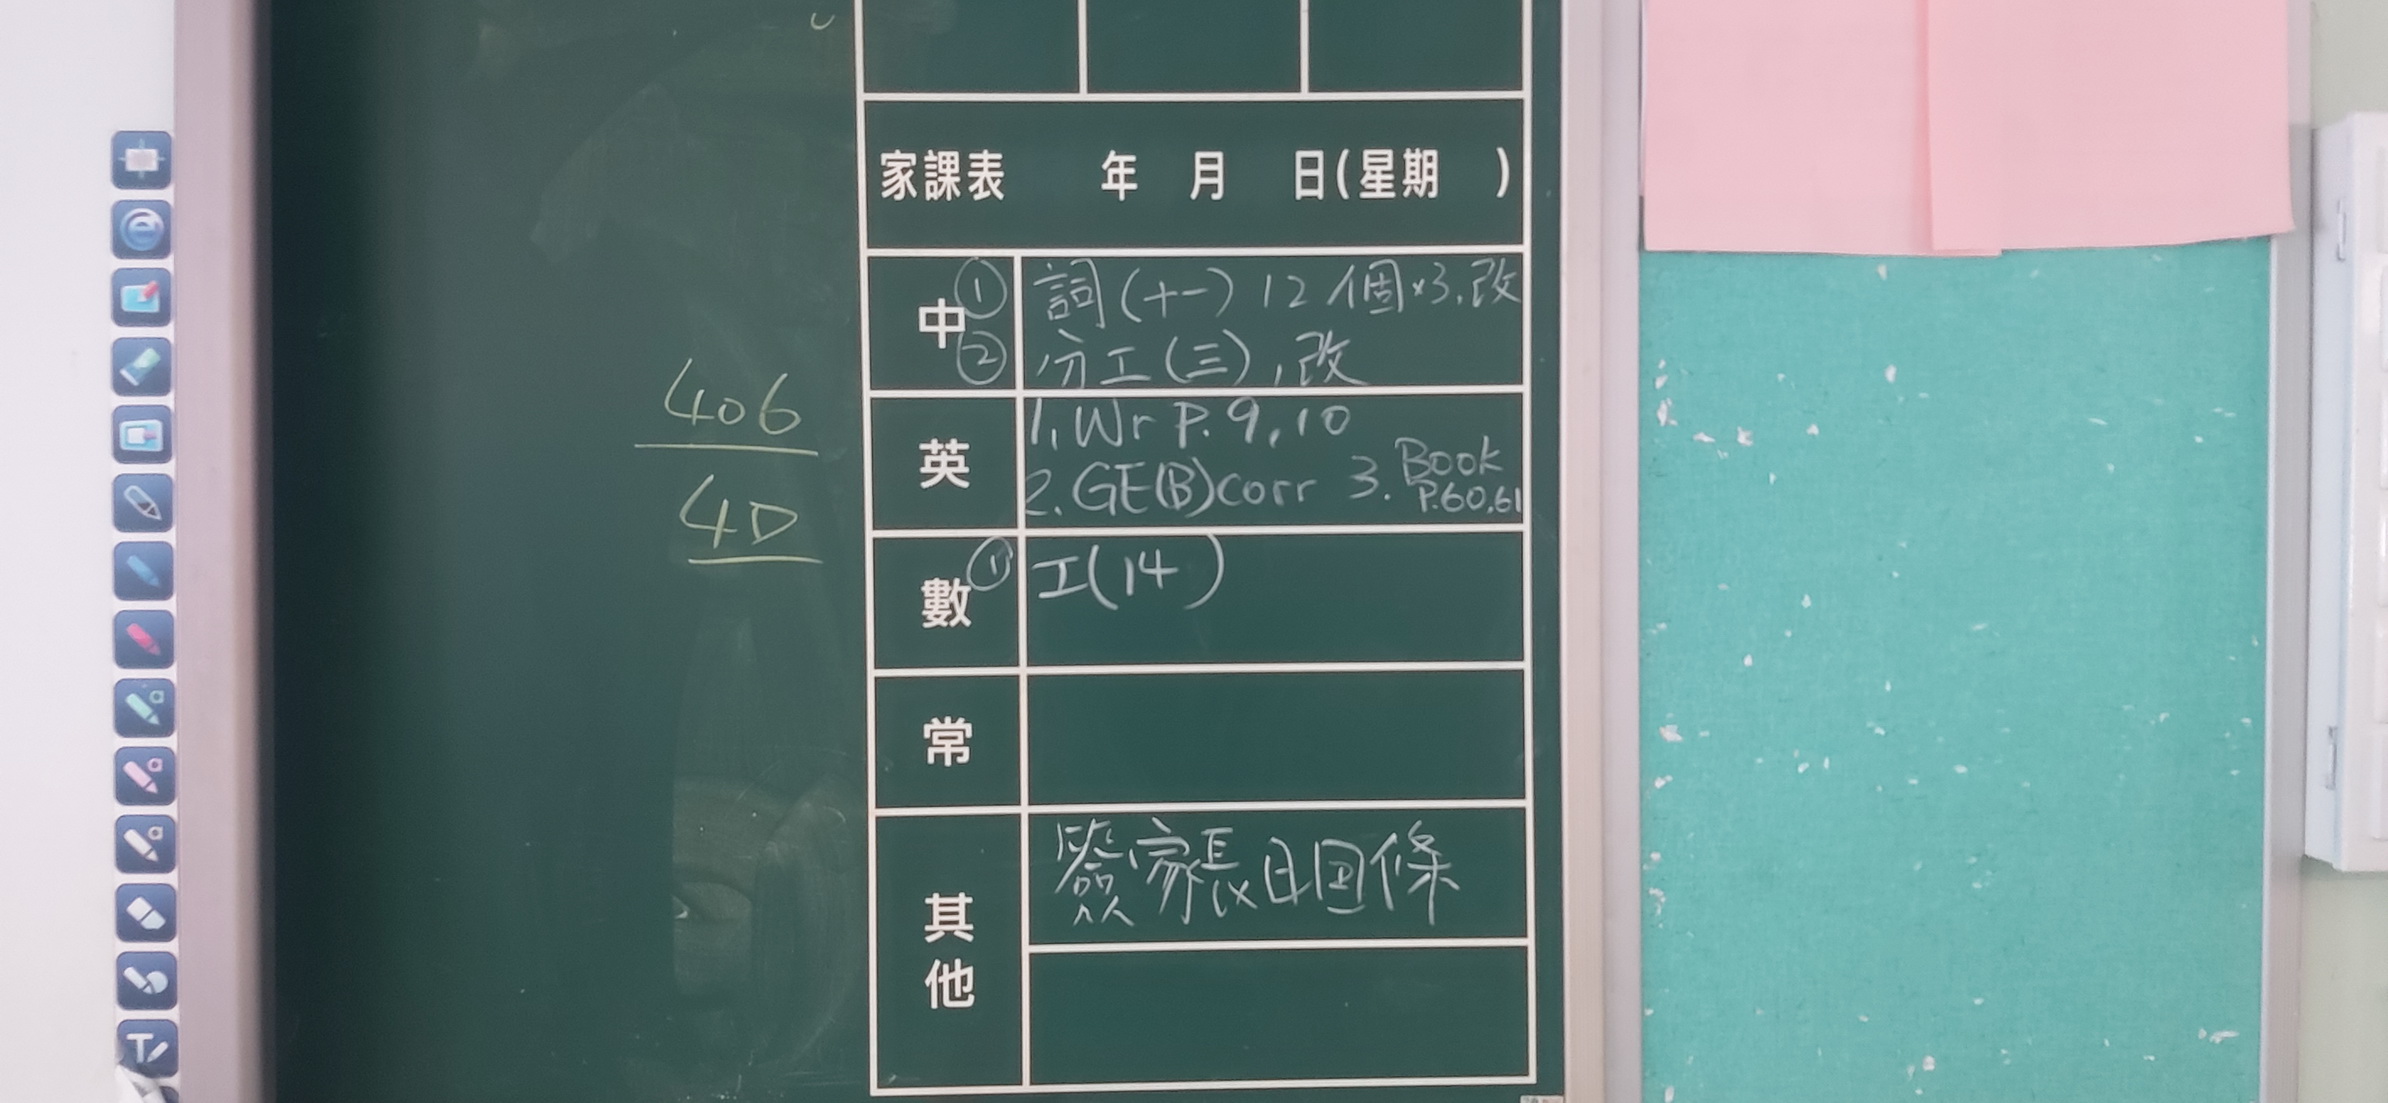 家課表 年 月 日(星期 )
中 ① 詞(十一) 12個×3,改
② 分工(三),改
英 1. Wr P. 9, 10
2. GE(B)corr 3. Book P.60,61
數 ① 工(14)
常
其他 簽家長日回條
406
4D
T